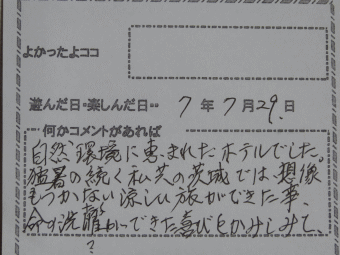 よかったよココ
遊んだ日・楽しんだ日… 7年7月29日
何かコメントがあれば
自然環境に恵まれたホテルでした。
猛暑の続く私共の茨城では、想像
もつかない涼しい旅ができた事、
命の洗濯ができた喜びをかみしみて、
?